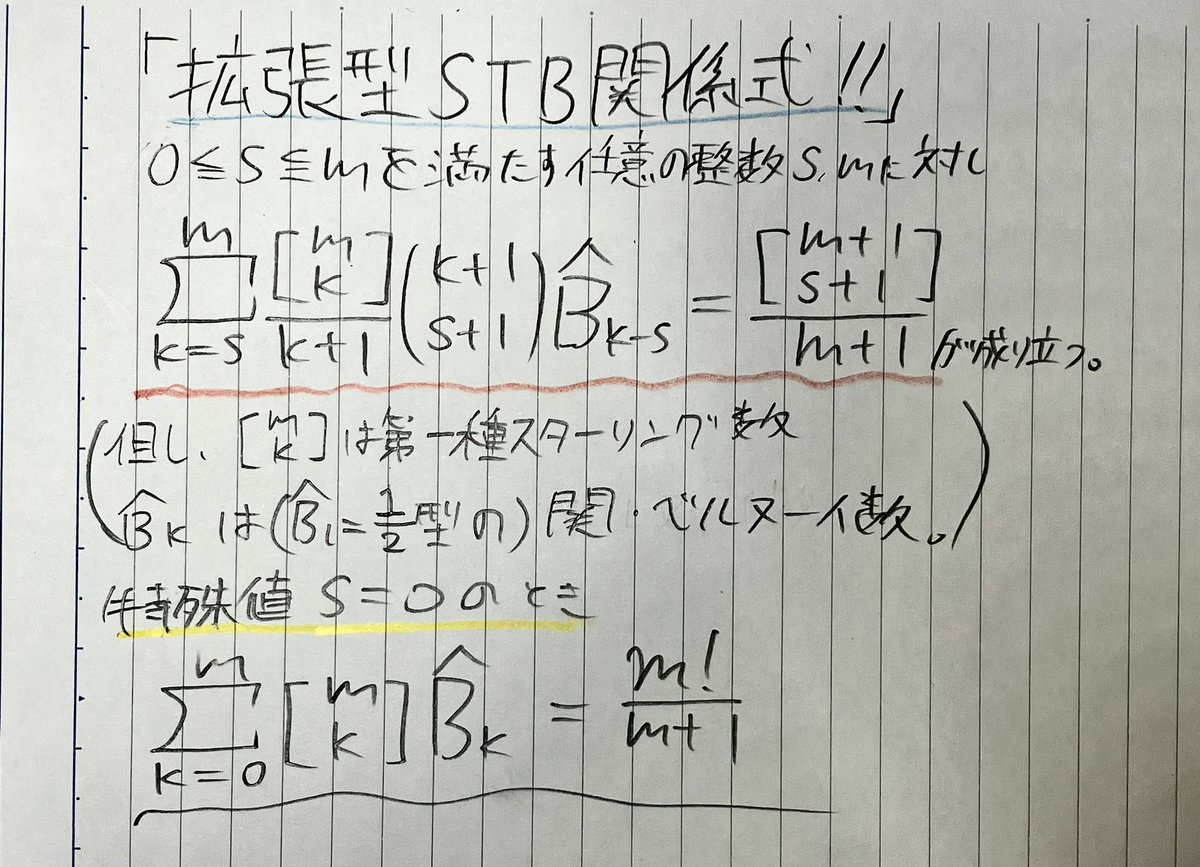 「拡張型STB関係式!!」
0≦S≦mを満たす任意の整数S,mに対し
\sum_{k=s}^{m} \frac{\left[{m \atop k}\right]}{k+1} \binom{k+1}{s+1} \hat{B}_{k-s} = \frac{\left[{m+1 \atop s+1}\right]}{m+1} が成り立つ。
(但し、\left[{m \atop k}\right]は第一種スターリング数
\hat{B}_kは(\hat{B}_1=\frac{1}{2}型の)関・ベルヌーイ数。)
特殊値 S=0のとき
\sum_{k=0}^{m} \left[{m \atop k}\right] \hat{B}_k = \frac{m!}{m+1}